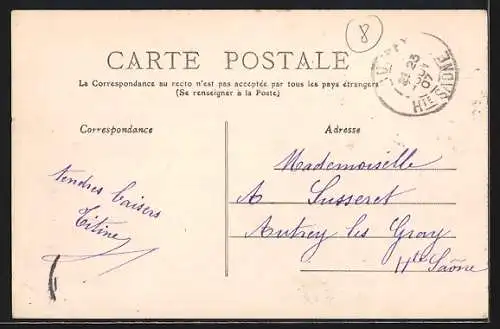 8
CARTE POSTALE
La Correspondance au recto n'est pas acceptée par tous les pays étrangers
(Se renseigner à la Poste)
HTE SAONE
Correspondance
Adresse
Tendres baisers
Titine
Mademoiselle
A. Susseret
Autrey les Gray
Hte Saône